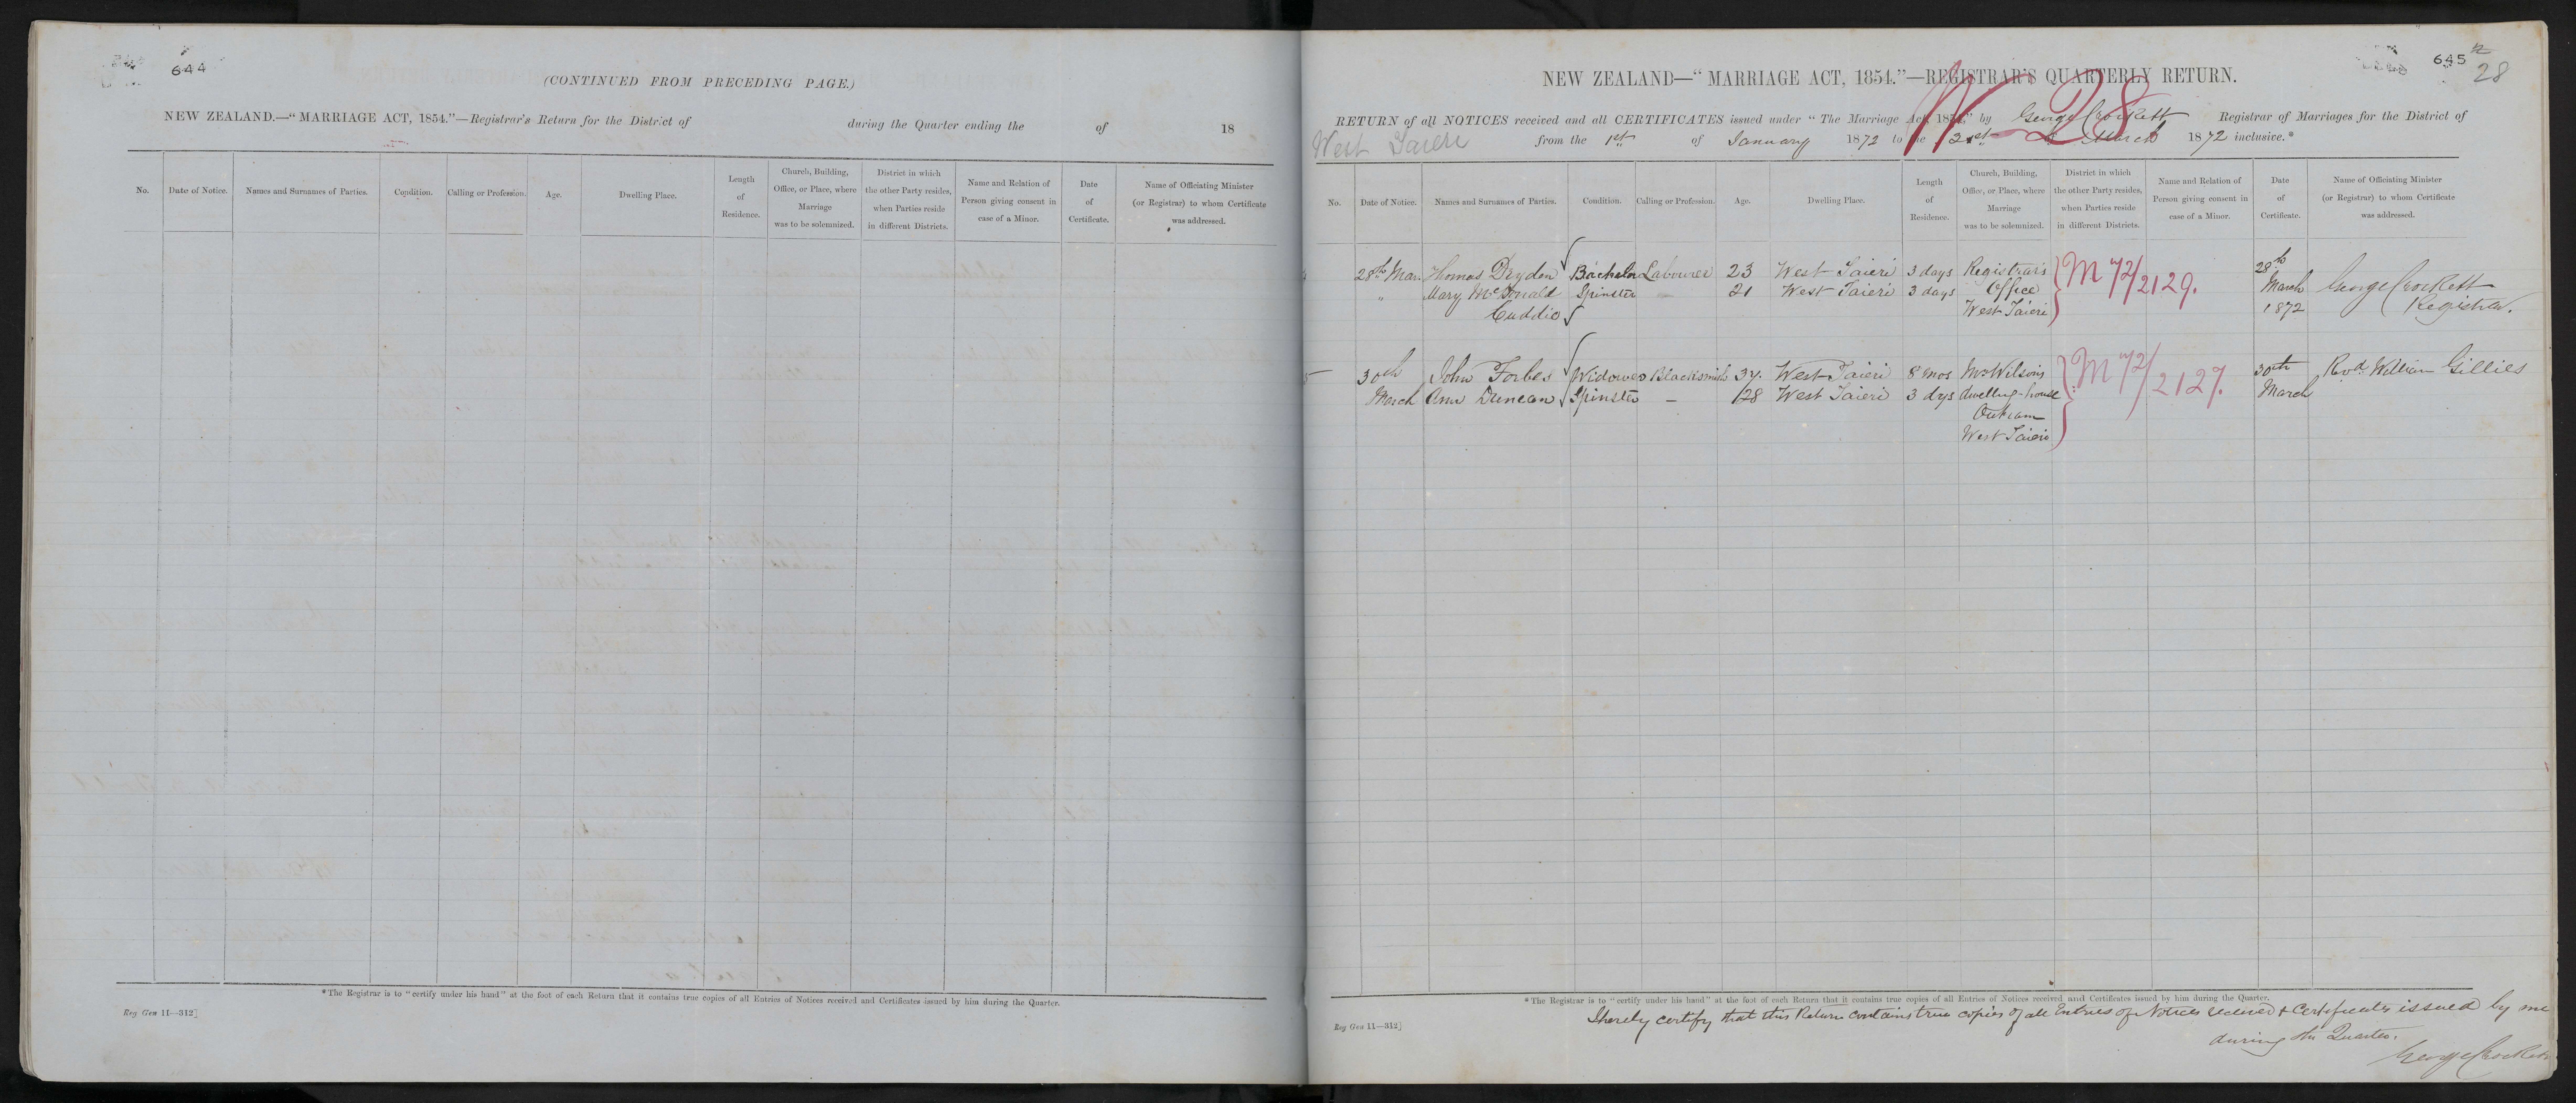 644
(CONTINUED FROM PRECEDING PAGE.)
NEW ZEALAND.—"MARRIAGE ACT, 1854."—Registrar's Return for the District of during the Quarter ending the of 18
No. Date of Notice. Names and Surnames of Parties. Condition. Calling or Profession. Age. Dwelling Place. Length of Residence. Church, Building, Office, or Place, where Marriage was to be solemnized. District in which the other Party resides, when Parties reside in different Districts. Name and Relation of Person giving consent in case of a Minor. Date of Certificate. Name of Officiating Minister (or Registrar) to whom Certificate was addressed.
*The Registrar is to "certify under his hand" at the foot of each Return that it contains true copies of all Entries of Notices received and Certificates issued by him during the Quarter.
Reg Gen 11—312]
645
28
NEW ZEALAND—"MARRIAGE ACT, 1854."—REGISTRAR'S QUARTERLY RETURN.
RETURN of all NOTICES received and all CERTIFICATES issued under "The Marriage Act, 1854," by George Crockett Registrar of Marriages for the District of
West Taieri from the 1st of January 1872 to the 31st of March 1872 inclusive.*
28
No. Date of Notice. Names and Surnames of Parties. Condition. Calling or Profession. Age. Dwelling Place. Length of Residence. Church, Building, Office, or Place, where Marriage was to be solemnized. District in which the other Party resides, when Parties reside in different Districts. Name and Relation of Person giving consent in case of a Minor. Date of Certificate. Name of Officiating Minister (or Registrar) to whom Certificate was addressed.
28th Mar Thomas Dryden Bachelor Labourer 23 West Taieri 3 days Registrar's M 72/2129. 28th
" Mary McDonald Spinster — 21 West Taieri 3 days Office March George Crockett
Cuddie West Taieri 1872 Registrar.
5 30th John Forbes Widower Blacksmith 37. West Taieri 8 mos Mr Wilson's M 72/2127. 30th Revd. William Gillies
March Ann Duncan Spinster — 28 West Taieri 3 dys dwelling-house March
Outram
West Taieri
*The Registrar is to "certify under his hand" at the foot of each Return that it contains true copies of all Entries of Notices received and Certificates issued by him during the Quarter.
Reg Gen 11—312]
I hereby certify that this Return contains true copies of all Entries of Notices received & Certificates issued by me
during the Quarter.
George Crockett